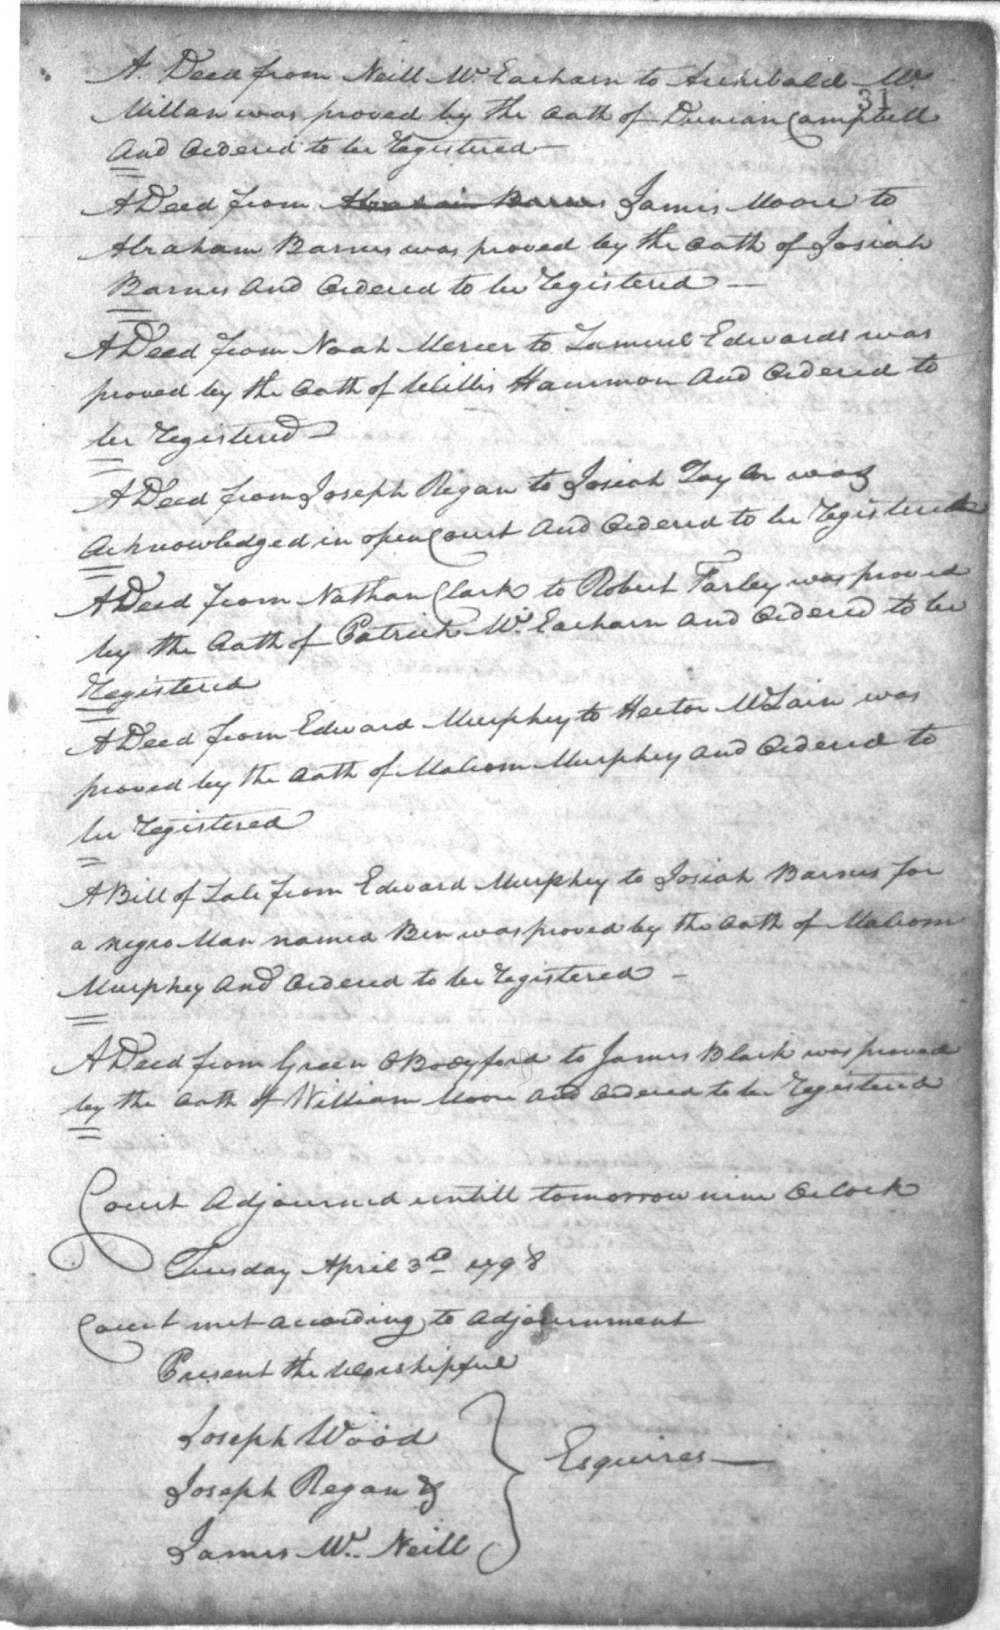 A Deed from Neill Mc Eacharn to Archibald Mc
31
Millan was proved by the oath of Duncan Campbell
And Ordered to be Registered
A Deed from Abraham Barnes James Moore to
Abraham Barnes was proved by the oath of Josiah
Barnes And Ordered to be Registered —
A Deed from Noah Mercer to Samuel Edwards was
proved by the Oath of Willis Hammon And Ordered to
be Registered —
A Deed from Joseph Regan to Josiah Taylor was
Acknowledged in open Court And Ordered to be Registered
A Deed from Nathan Clark to Robert Farley was proved
by the Oath of Patrick Mc Eacharn And Ordered to be
Registered
A Deed from Edward Murphey to Hector McLain was
proved by the Oath of Malcom Murphey And Ordered to
be Registered
A Bill of Sale from Edward Murphey to Josiah Barnes for
a negro Man named Ben was proved by the Oath of Malcom
Murphey And Ordered to be Registered —
A Deed from Green Bodyford to James Black was proved
by the Oath of William Moore And Ordered to be Registered
Court Adjourned untill tomorrow nine OClock
Tuesday April 3rd 1798
Court met according to adjournment
Present the Worshipful
Joseph Wood
Joseph Regan &
James Mc Neill
Esquires —